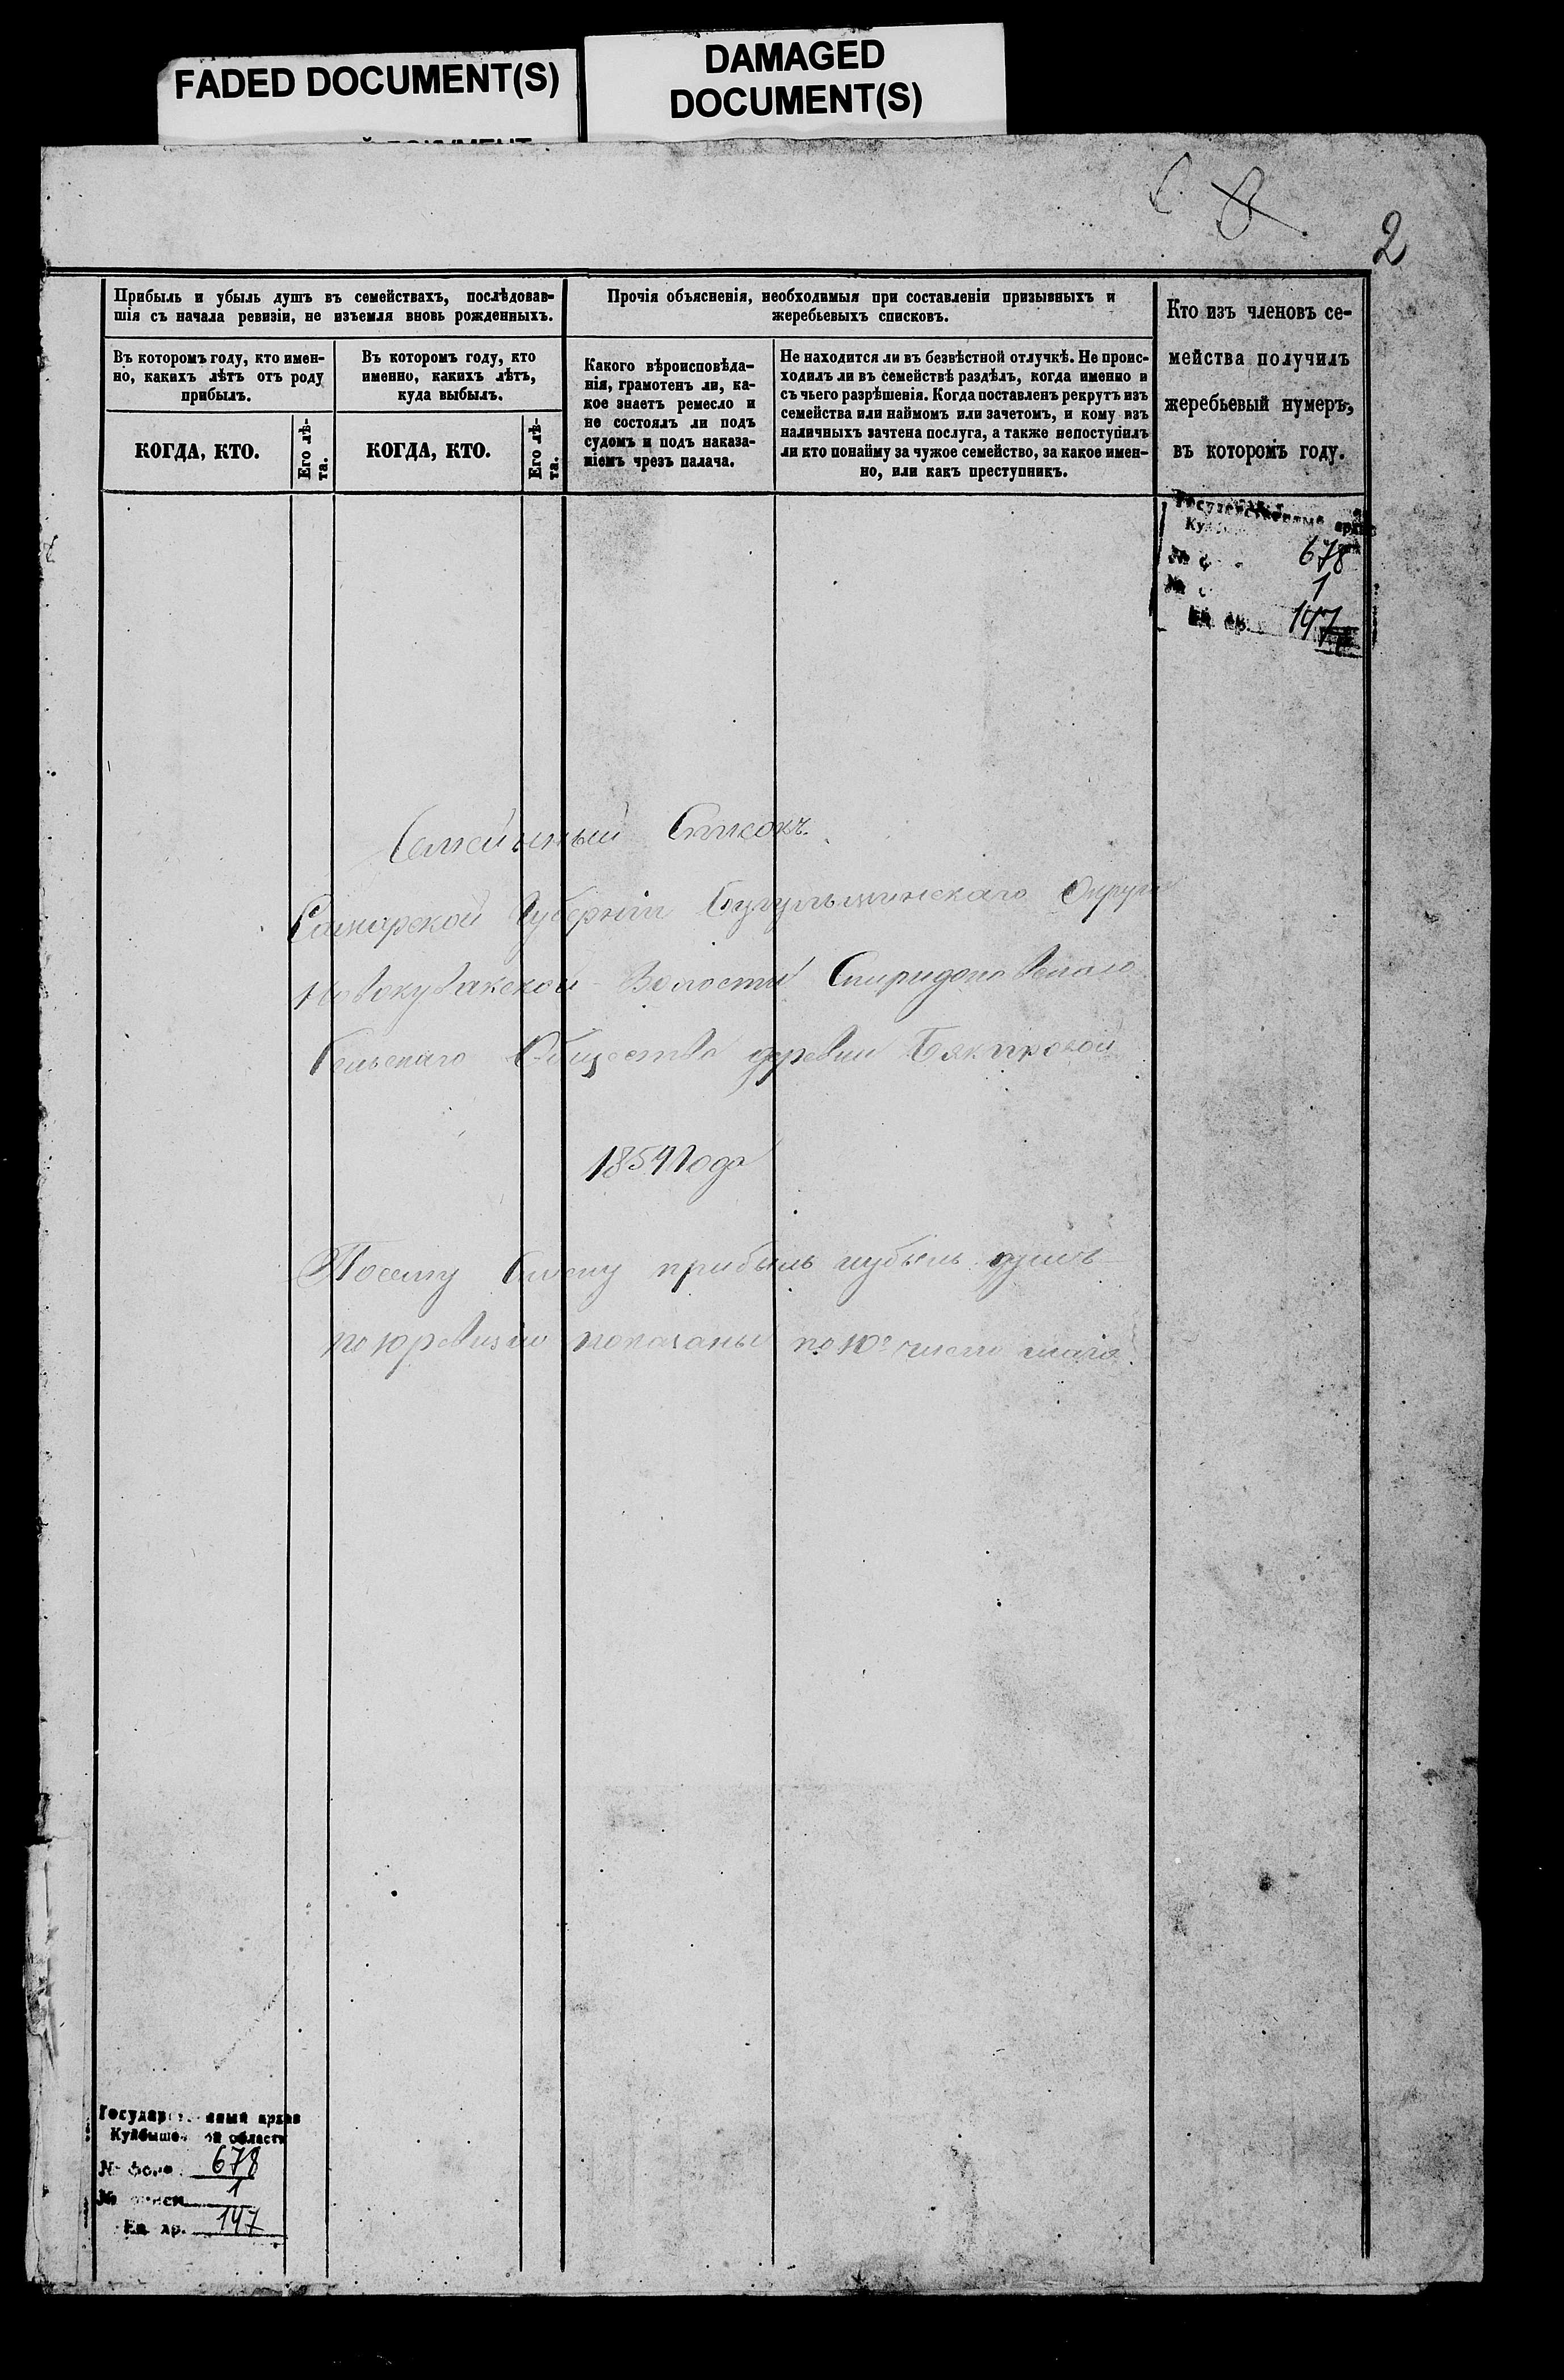 FADED DOCUMENT(S)
DAMAGED
DOCUMENT(S)
8
2
Прибыль и убыль душъ въ семействахъ, послѣдовав-
шія съ начала ревизіи, не изъемля вновь рожденныхъ.
Прочія объясненія, необходимыя при составленіи призывныхъ и
жеребьевыхъ списковъ.
Кто изъ членовъ се-
мейства получилъ
жеребьевый нумеръ,
въ которомъ году.
Въ которомъ году, кто имен-
но, какихъ лѣтъ отъ роду
прибылъ.
Въ которомъ году, кто
именно, какихъ лѣтъ,
куда выбылъ.
Какого вѣроисповѣда-
нія, грамотенъ ли, ка-
кое знаетъ ремесло и
не состоялъ ли подъ
судомъ и подъ наказа-
ніемъ чрезъ палача.
Не находится ли въ безвѣстной отлучкѣ. Не проис-
ходилъ ли въ семействѣ раздѣлъ, когда именно и
съ чьего разрѣшенія. Когда поставленъ рекрутъ изъ
семейства или наймомъ или зачетомъ, и кому изъ
наличныхъ зачтена послуга, а также непоступилъ
ли кто понайму за чужое семейство, за какое имен-
но, или какъ преступникъ.
КОГДА, КТО.
Его лѣ-
та.
КОГДА, КТО.
Его лѣ-
та.
678
1
147
Семейный Списокъ
Самарской Губерніи Бугульминскаго Округа
Новокувакской Волости Спиридоновскаго
Сельскаго Общества деревни
185 года
Посему списку прибыль и убыль душъ
по 10 ревизію показаны по 10е число мага
Государственный архив
Куйбышевской области
№ фонда 678
№ описи 1
Ед. хр. 147